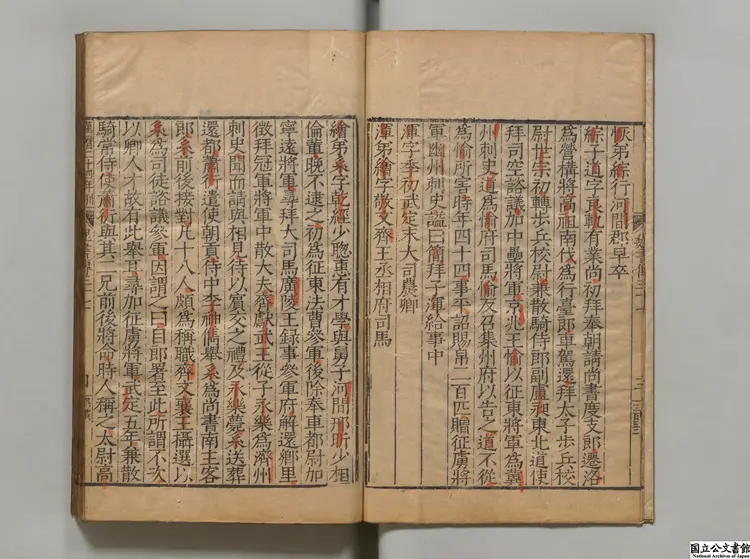 魏書傳三十七
恢弟綜行河間郡早卒
綜子遵字良軌有業尚初拜奉朝請尚書度支郎遷洛
為營構將高祖南伐為行臺郎車駕還拜太子步兵校
尉世宗初轉步兵校尉兼散騎侍郎副盧昶東北道使
拜司空諮議加中壘將軍京兆王愉以征東將軍為冀
州刺史遵為愉府司馬愉反召集州府以告之遵不從
為愉所害時年四十四事平詔賜帛二百匹贈征虜將
軍幽州刺史謚曰簡拜子渾給事中
渾字季初武定末大司農卿
渾弟繪字敬文齊王丞相府司馬
繪弟系字乾經少聰惠有才學與舅子河間邢昕少相
倫輩晚不逮之初為征東法曹參軍後除奉車都尉加
寧遠將軍尋拜大司馬廣陵王錄事參軍府解還鄉里
徵拜冠軍將軍中散大夫齊獻武王從子永樂為濟州
刺史聞而請與相見待以賓交之禮及永樂薨系送葬
還都蕭衍遣使朝貢侍中李神儁舉系為尚書南主客
郎系前後接對凡十八人頗為稱職齊文襄王攝選以
系為司徒諮議參軍因謂之曰自郎署至此所謂不次
以卿人才故有此舉耳尋加征虜將軍武定五年兼散
騎常侍使蕭衍與其二兄前後將命時人稱之太尉高
萬曆二十四年刊 魏書傳三十七
国立公文書館
National Archives of Japan